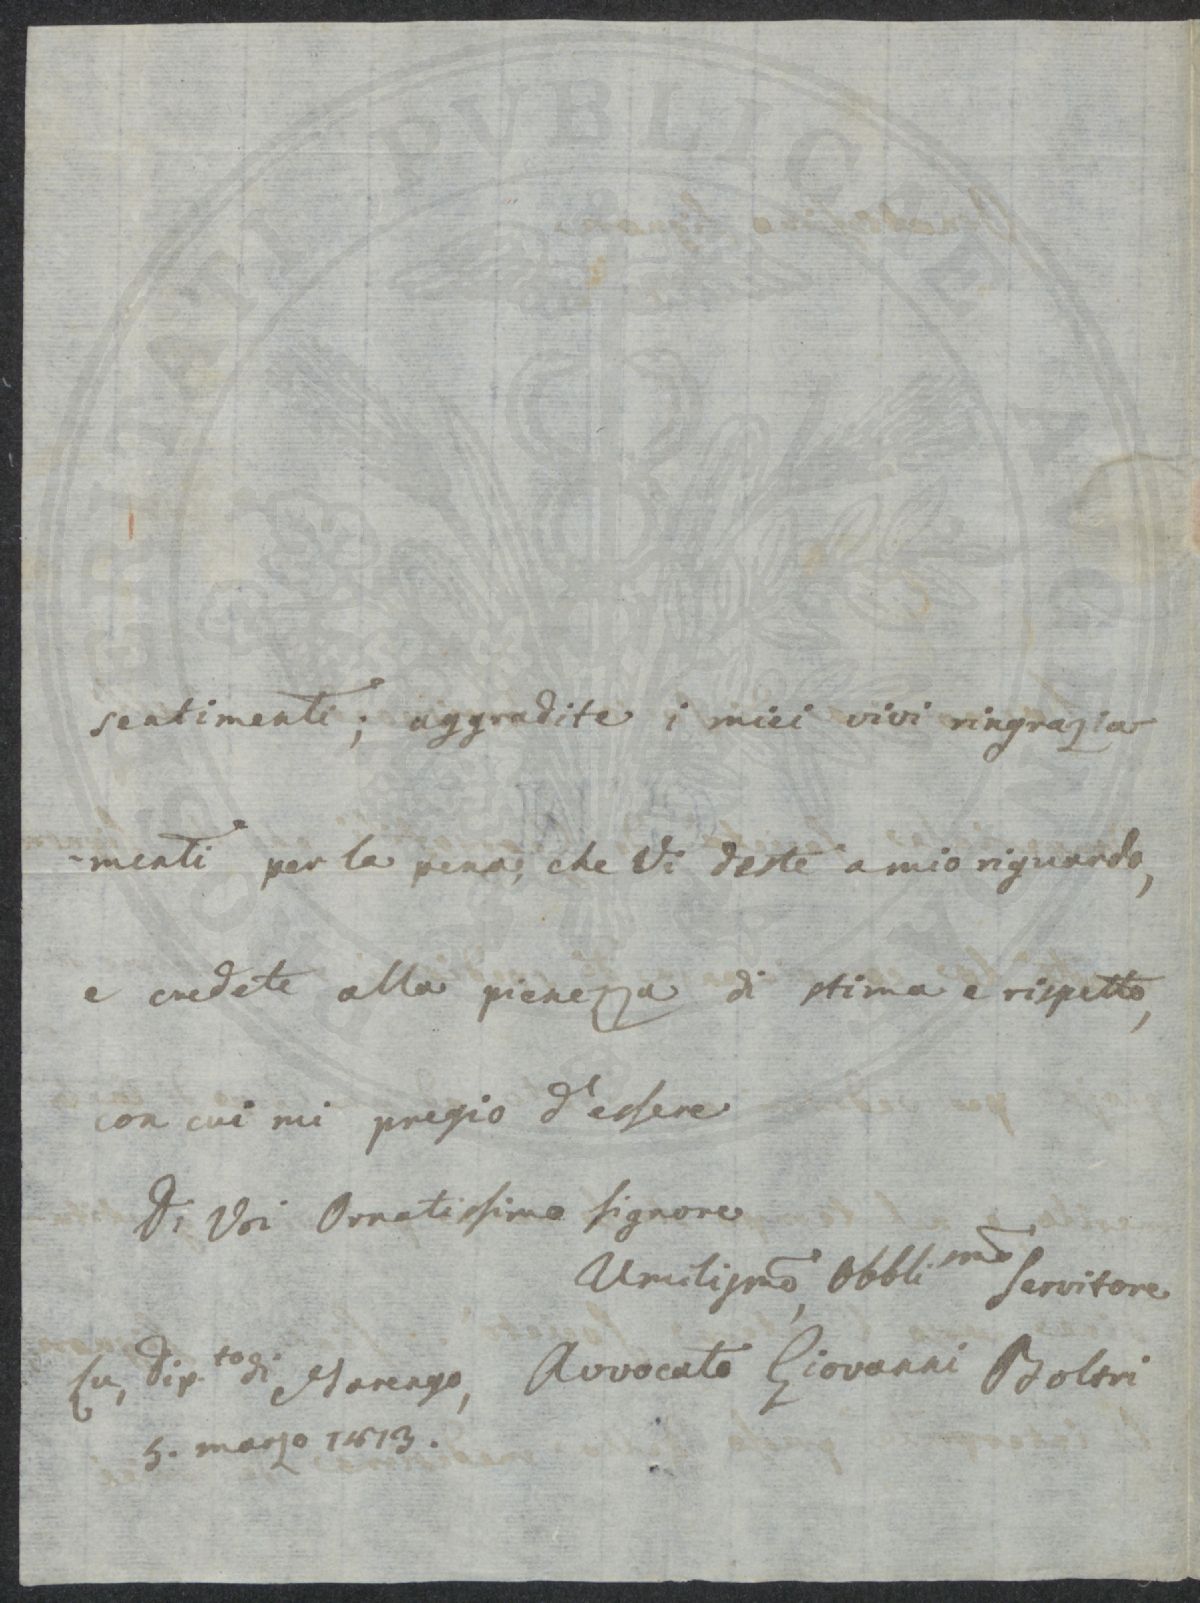 sentimenti; aggradite i miei vivi ringrazia-
-menti per la pena, che Vi deste a mio riguardo,
e credete alla pienezza di stima e rispetto,
con cui mi pregio d'essere
Di Voi Ornatissimo Signore
Umilismo, Obblismo Servitore
Lu, Dip.to di Marengo, Avvocato Giovanni Boltri
5. marzo 1813.